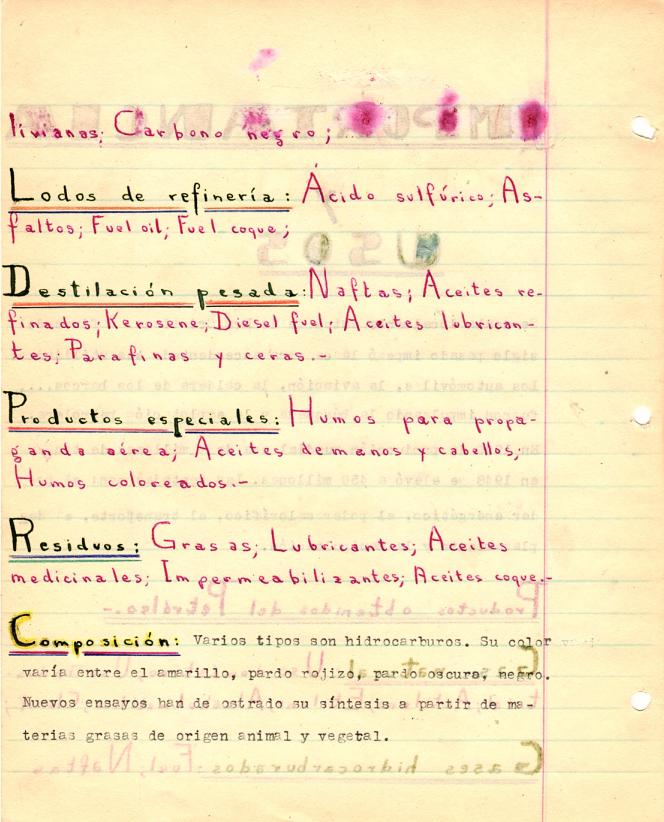 livianas; Carbono negro;
Lodos de refinería: Ácido sulfúrico; As-
faltos; Fuel oil; Fuel coque;
Destilación pesada: Naftas; Aceites re-
finados; Kerosene; Diesel fuel; Aceites lubrican-
tes; Parafinas y ceras.-
Productos especiales: Humos para propa-
ganda aérea; Aceites de manos y cabellos;
Humos coloreados.-
Residuos: Grasas; Lubricantes; Aceites
medicinales; Impermeabilizantes; Aceites coque.-
Composición: Varios tipos son hidrocarburos. Su color
varía entre el amarillo, pardo rojizo, pardo oscuro, negro.
Nuevos ensayos han de ostrado su síntesis a partir de ma-
terias grasas de origen animal y vegetal.